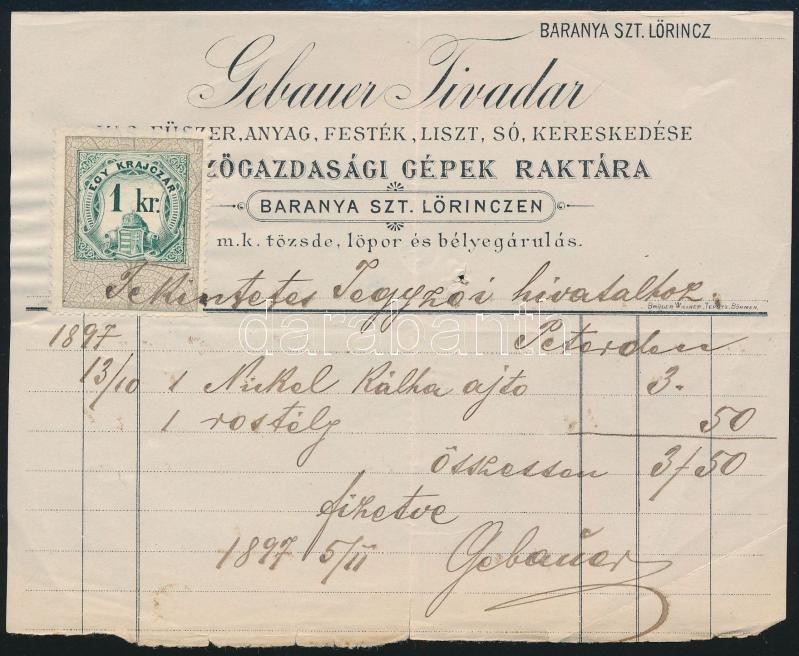 BARANYA SZT. LŐRINCZ
Gebauer Tivadar
FŰSZER, ANYAG, FESTÉK, LISZT, SÓ, KERESKEDÉSE
GAZDASÁGI GÉPEK RAKTÁRA
BARANYA SZT. LŐRINCZEN
m.k. tőzsde, lőpor és bélyegárulás.
EGY KRAJCZÁR
1 kr.
Tekintetes Jegyzői hivatalhoz
darabanth
1897 Peterden
13/10 1 Nickel Kálha ajto 3-
1 rostély 50
összessen 3/50
fizetve
1897 5/11 Gebauer